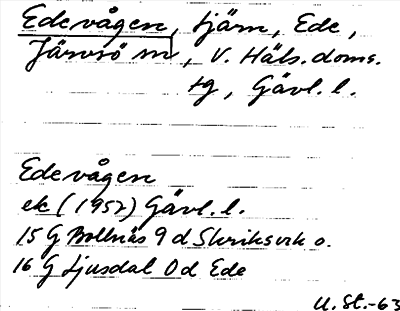 Edevågen, tjärn, Ede,
Järvsö sn, V. Häls. doms.
tg, Gävl. l.
Edevågen
ek (1952) Gävl. l.
15 G Bollnäs 9 d Skriksvik o.
16 G Ljusdal 0 d Ede
U. St.-63